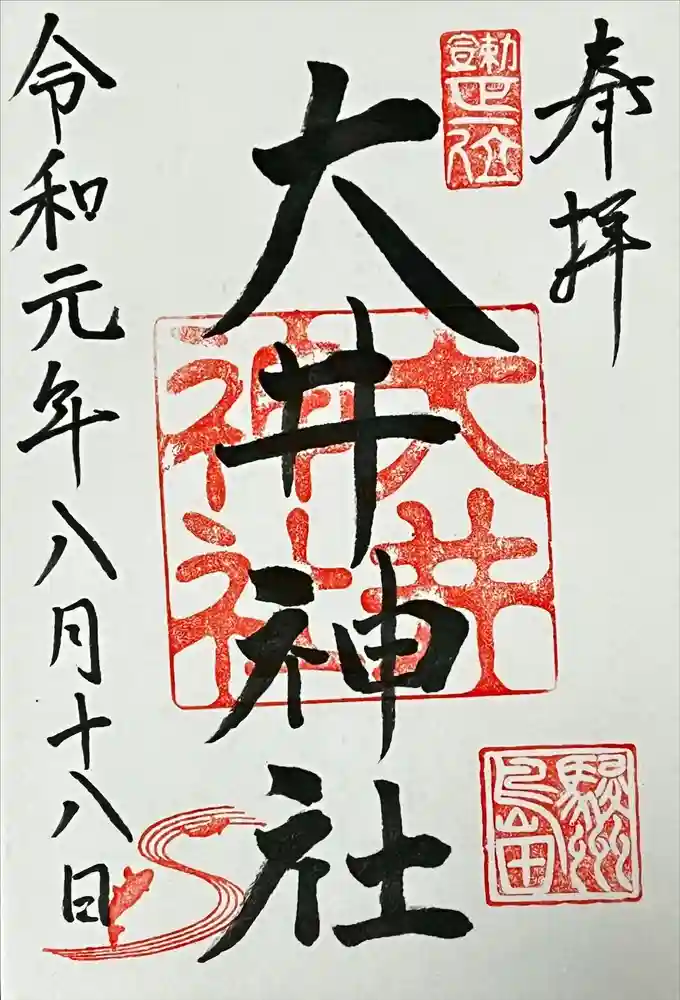 奉拝
勅宣正一位
大井神社
大井神社
駿州島田
令和元年八月十八日